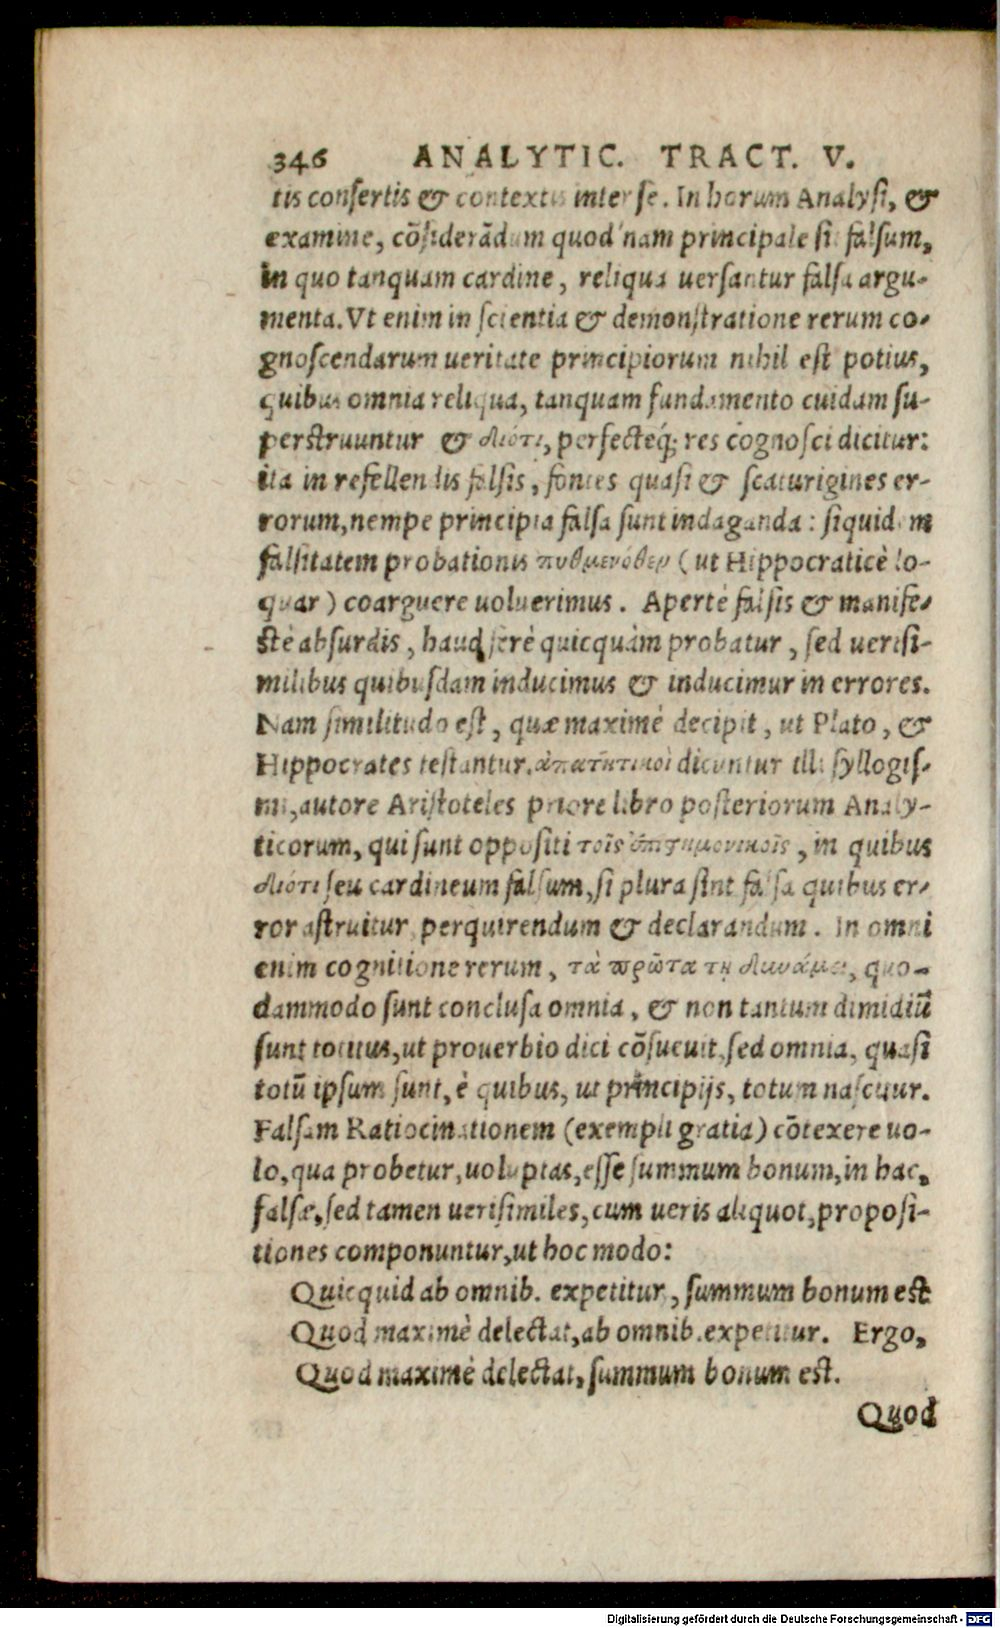 346 ANALYTIC. TRACT. V.
tis consertis & contextis inter se. In horum Analysi, &
examine, cõsiderãdum quod nam principale sit falsum,
in quo tanquam cardine, reliqua uersantur falsa argu-
menta. Vt enim in scientia & demonstratione rerum co-
gnoscendarum ueritate principiorum nihil est potius,
quibus omnia reliqua, tanquam fundamento cuidam su-
perstruuntur & διότι, perfecteq́; res cognosci dicitur:
ita in refellendis falsis, fontes quasi & scaturigines er-
rorum, nempe principia falsa sunt indaganda: siquidem
falsitatem probationis πυθμενόθεν (ut Hippocraticè lo-
quar) coarguere uoluerimus. Apertè falsis & manife-
stè absurdis, haud ferè quicquàm probatur, sed uerisi-
milibus quibusdam inducimus & inducimur in errores.
Nam similitudo est, quæ maximè decipit, ut Plato, &
Hippocrates testantur. ἀπατητικοὶ dicuntur illi syllogis-
mi, autore Aristoteles priore libro posteriorum Analy-
ticorum, qui sunt oppositi τοῖς ἐπιστημονικοῖς, in quibus
διότι seu cardineum falsum, si plura sint falsa quibus er-
ror astruitur perquirendum & declarandum. In omni
enim cognitione rerum, τὰ πρῶτα τῇ δυνάμει, quo-
dammodo sunt conclusa omnia, & non tantum dimidiũ
sunt totius, ut prouerbio dici cõsueuit, sed omnia, quasi
totũ ipsum sunt, è quibus, ut principijs, totum nascitur.
Falsam Ratiocinationem (exempli gratia) cõtexere uo-
lo, qua probetur, uoluptas, esse summum bonum, in hac,
falsæ, sed tamen uerisimiles, cum ueris aliquot, proposi-
tiones componuntur, ut hoc modo:
Quicquid ab omnib. expetitur, summum bonum est
Quod maximè delectat, ab omnib. expetitur. Ergo,
Quod maximè delectat, summum bonum est.
Quod
Digitalisierung gefördert durch die Deutsche Forschungsgemeinschaft - DFG